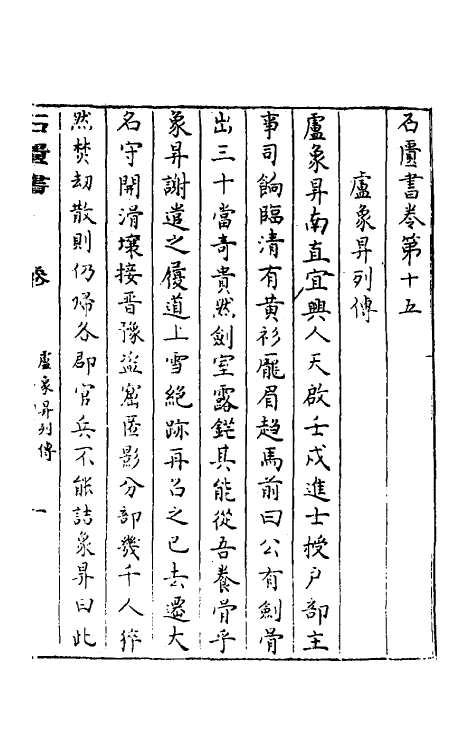 石匱書卷第十五
盧象昇列傳
盧象昇南直宜興人天啟壬戌進士授戶部主
事司餉臨清有黃衫龐眉趨馬前曰公有劍骨
出三十當奇貴然劍室露鋩其能從吾養骨乎
象昇謝遣之履道上雪絕跡再召之已去遷大
名守開滑壤接晉豫盜窟匿影分部幾千人猝
然焚劫散則仍歸各郡官兵不能詰象昇曰此
石匱書
卷
盧象昇列傳
一